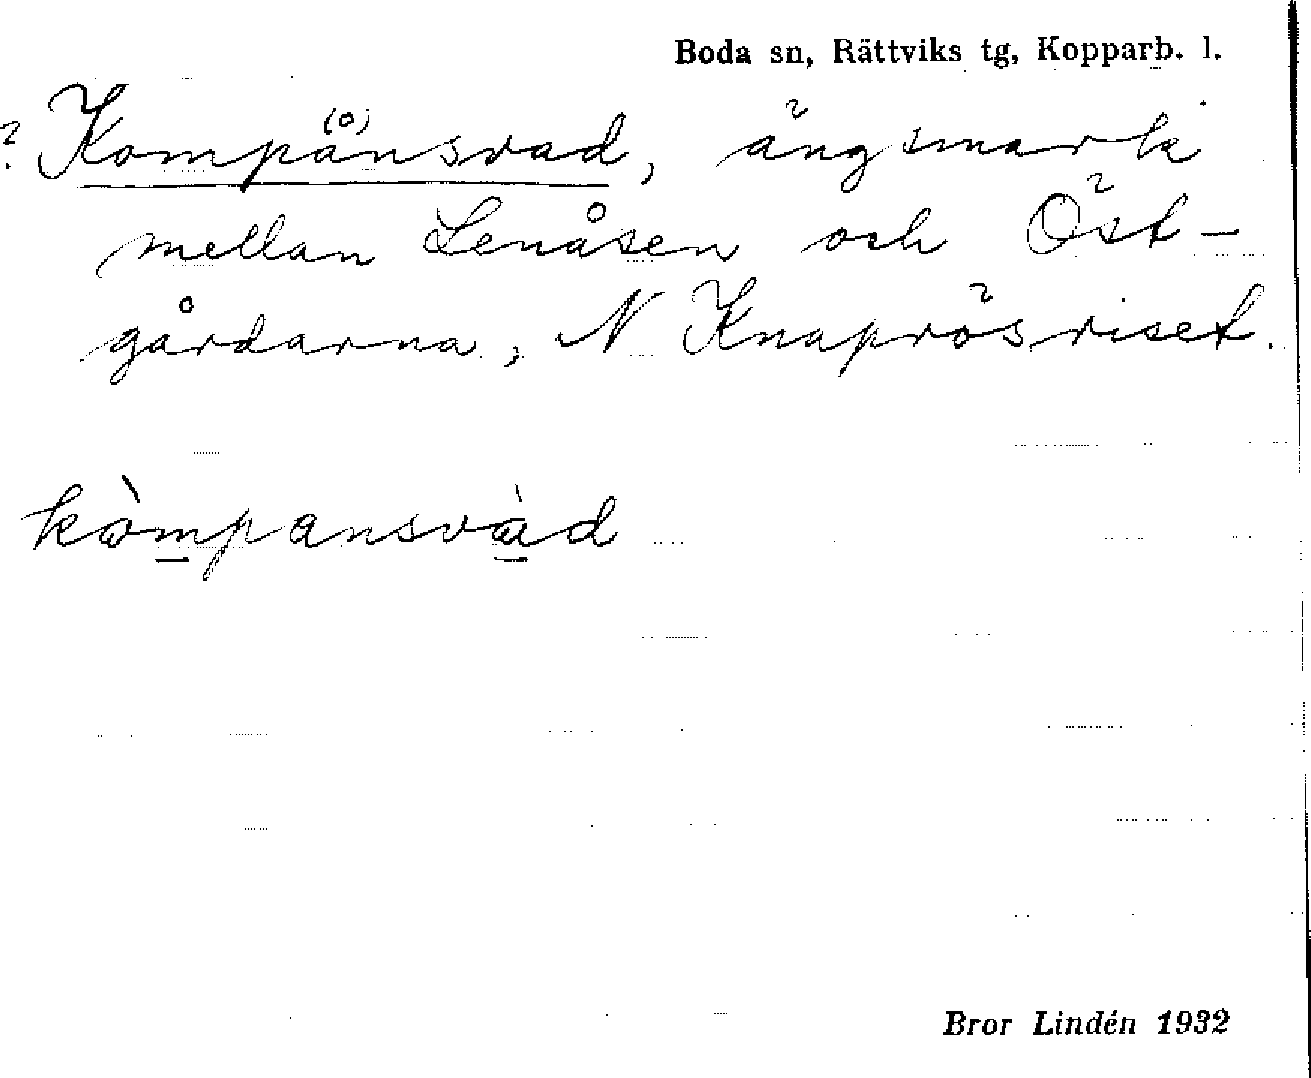 Boda sn, Rättviks tg, Kopparb. l.
? Kompånsvad, ängsmark
mellan Lenåsen och Öst-
gårdarna, N Knaprösriset.
kòmpansvàd
Bror Lindén 1932